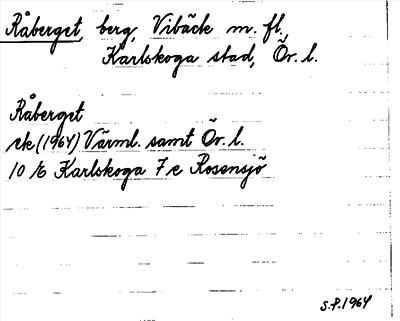 Råberget, berg, Vibäck m. fl.,
Karlskoga stad, Ör. l.
Råberget
ek (1964) Värml. samt Ör. l.
10 /6 Karlskoga 7 e Rosensjö
S.P. 1964